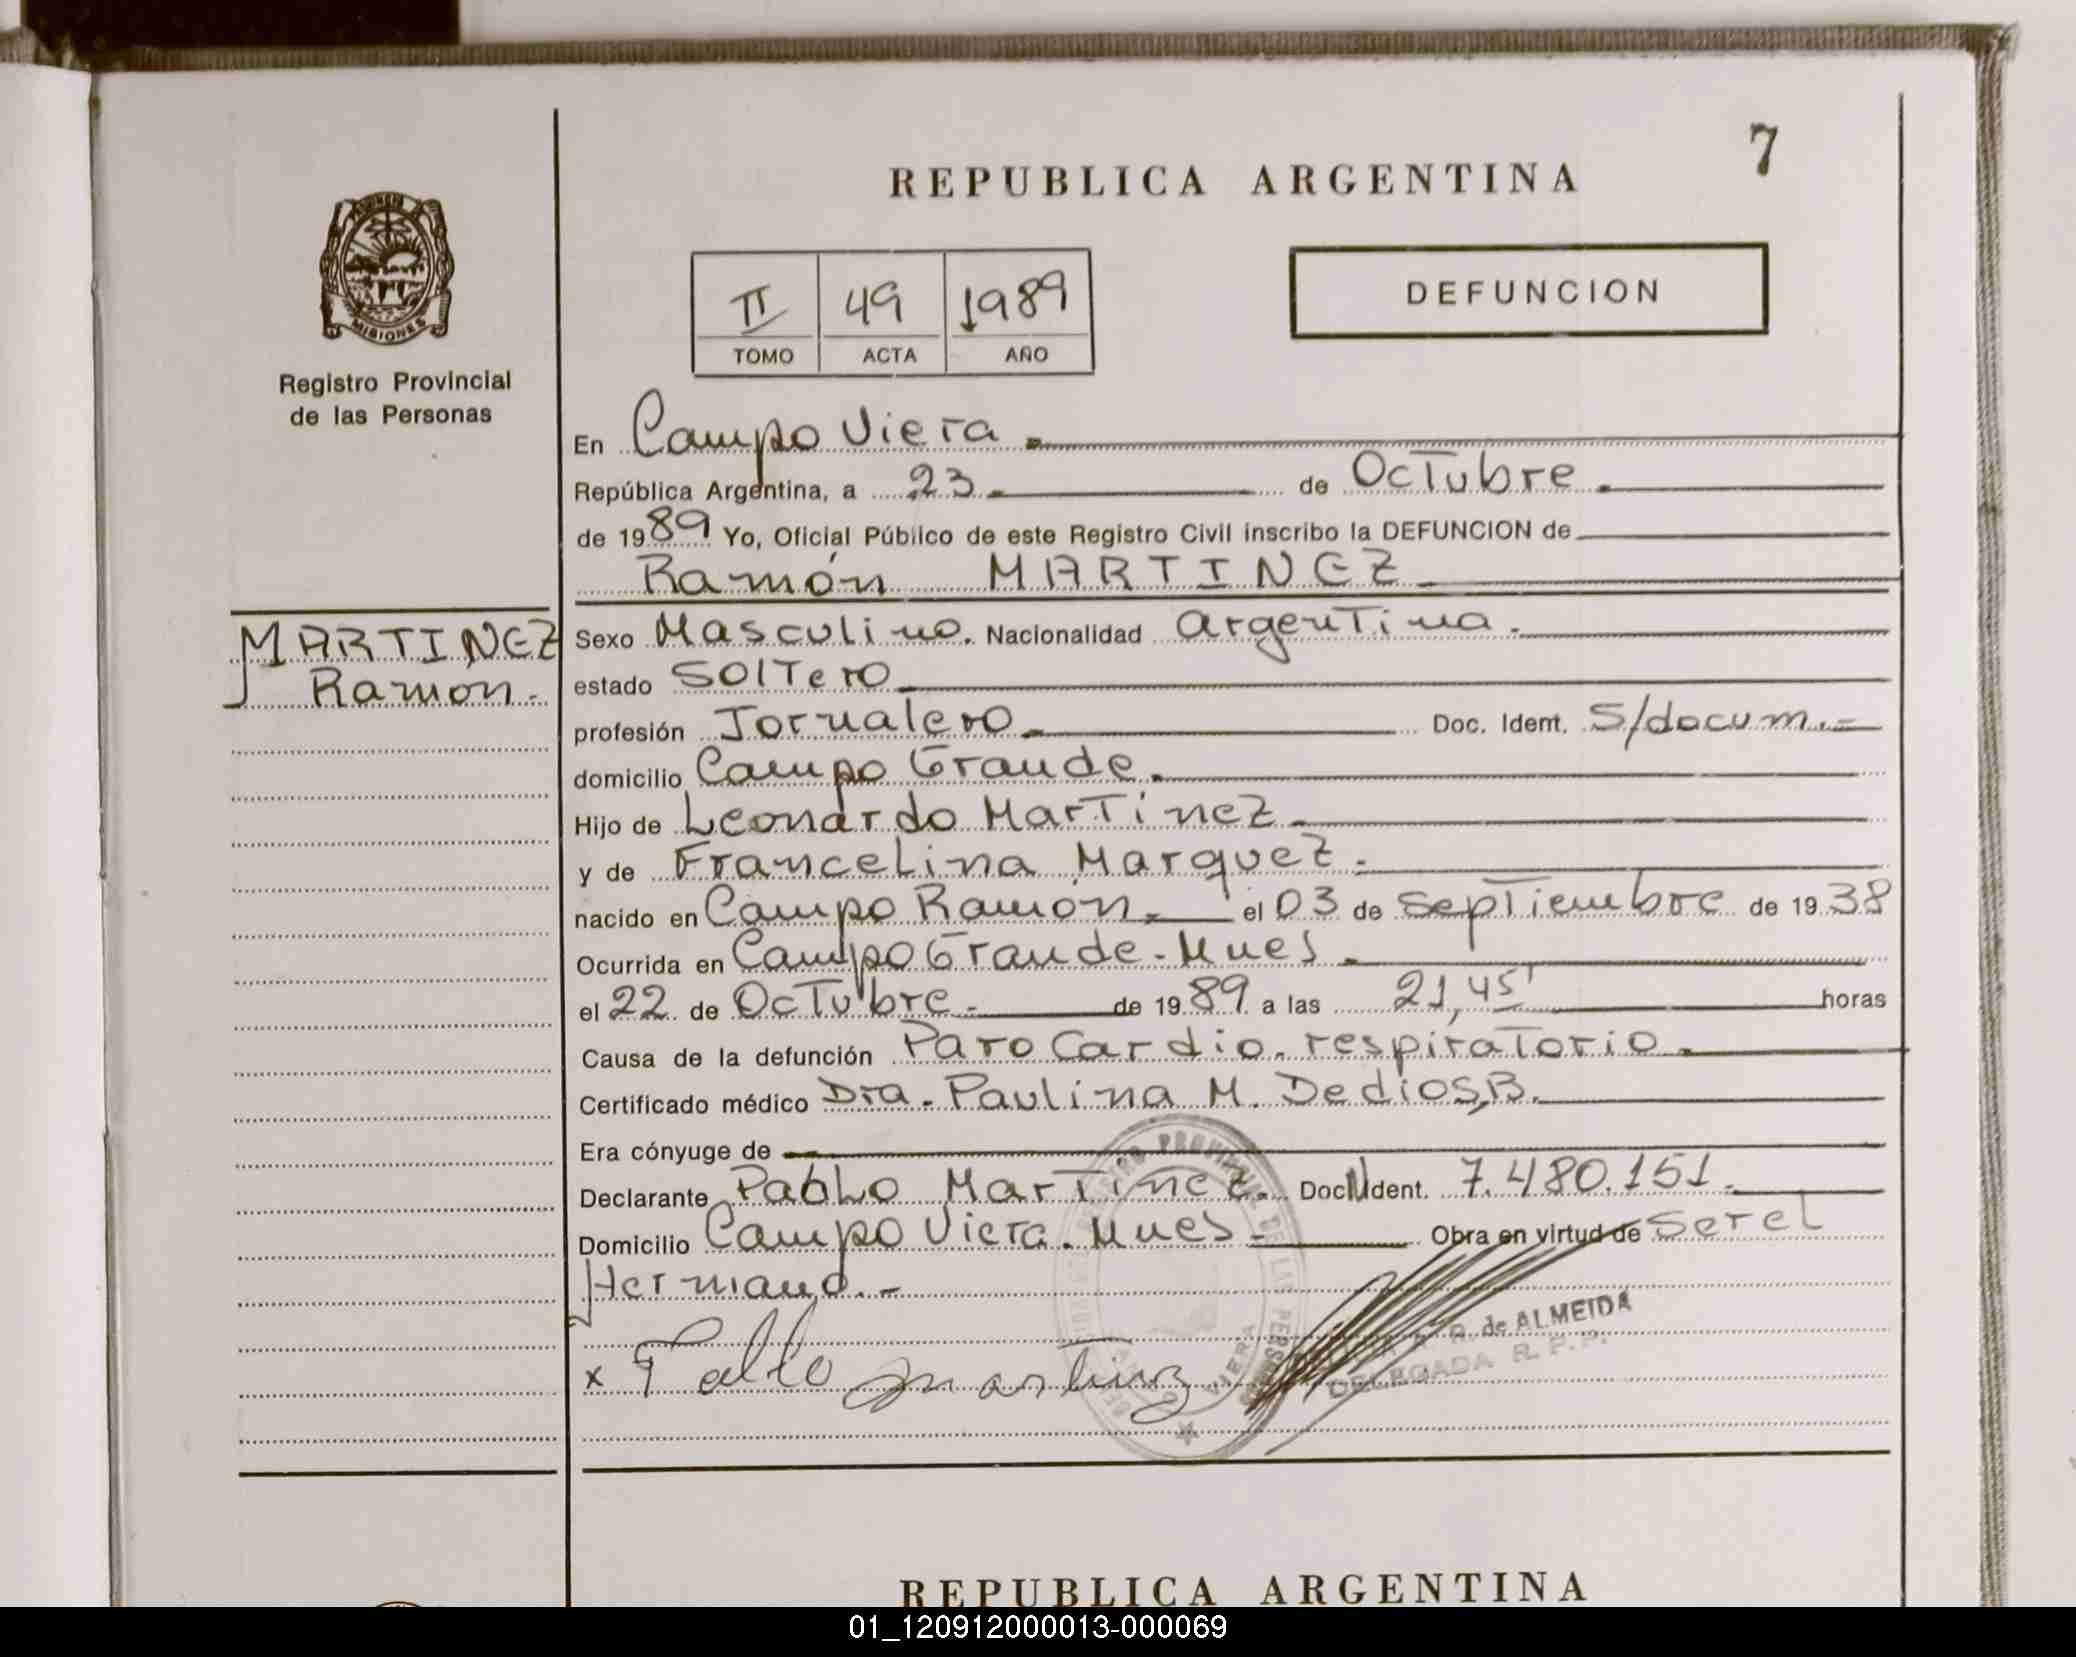 7
REPUBLICA ARGENTINA
DEFUNCION
II 49 1989
TOMO ACTA AÑO
MISIONES
Registro Provincial
de las Personas
En Campo Viera.
República Argentina, a 23. de Octubre.
de 1989 Yo, Oficial Público de este Registro Civil inscribo la DEFUNCION de
Ramón MARTINEZ
MARTINEZ
Ramon.-
Sexo Masculino. Nacionalidad argentina.
estado Soltero
profesión Jornalero. Doc. Ident. S/docum.-
domicilio Campo Grande.
Hijo de Leonardo Martinez.
y de Francelina Marquez.
nacido en Campo Ramón. el 03 de septiembre de 1938
Ocurrida en Campo Grande-Mnes.
el 22 de Octubre. de 1989 a las 21,45' horas
Causa de la defunción Paro Cardio-respiratorio.
Certificado médico Dra. Paulina M. Dedios,B.
Era cónyuge de
Declarante Pablo Martinez. Doc N Ident. 7.480.151.
Domicilio Campo Viera. Mnes- Obra en virtud de ser el
Hermano.-
de ALMEIDA
DELEGADA R.P.P.
x Pablo martinez
REGISTRO PROVINCIAL DE LAS PERSONAS
VIERA
REPUBLICA ARGENTINA
01_120912000013-000069